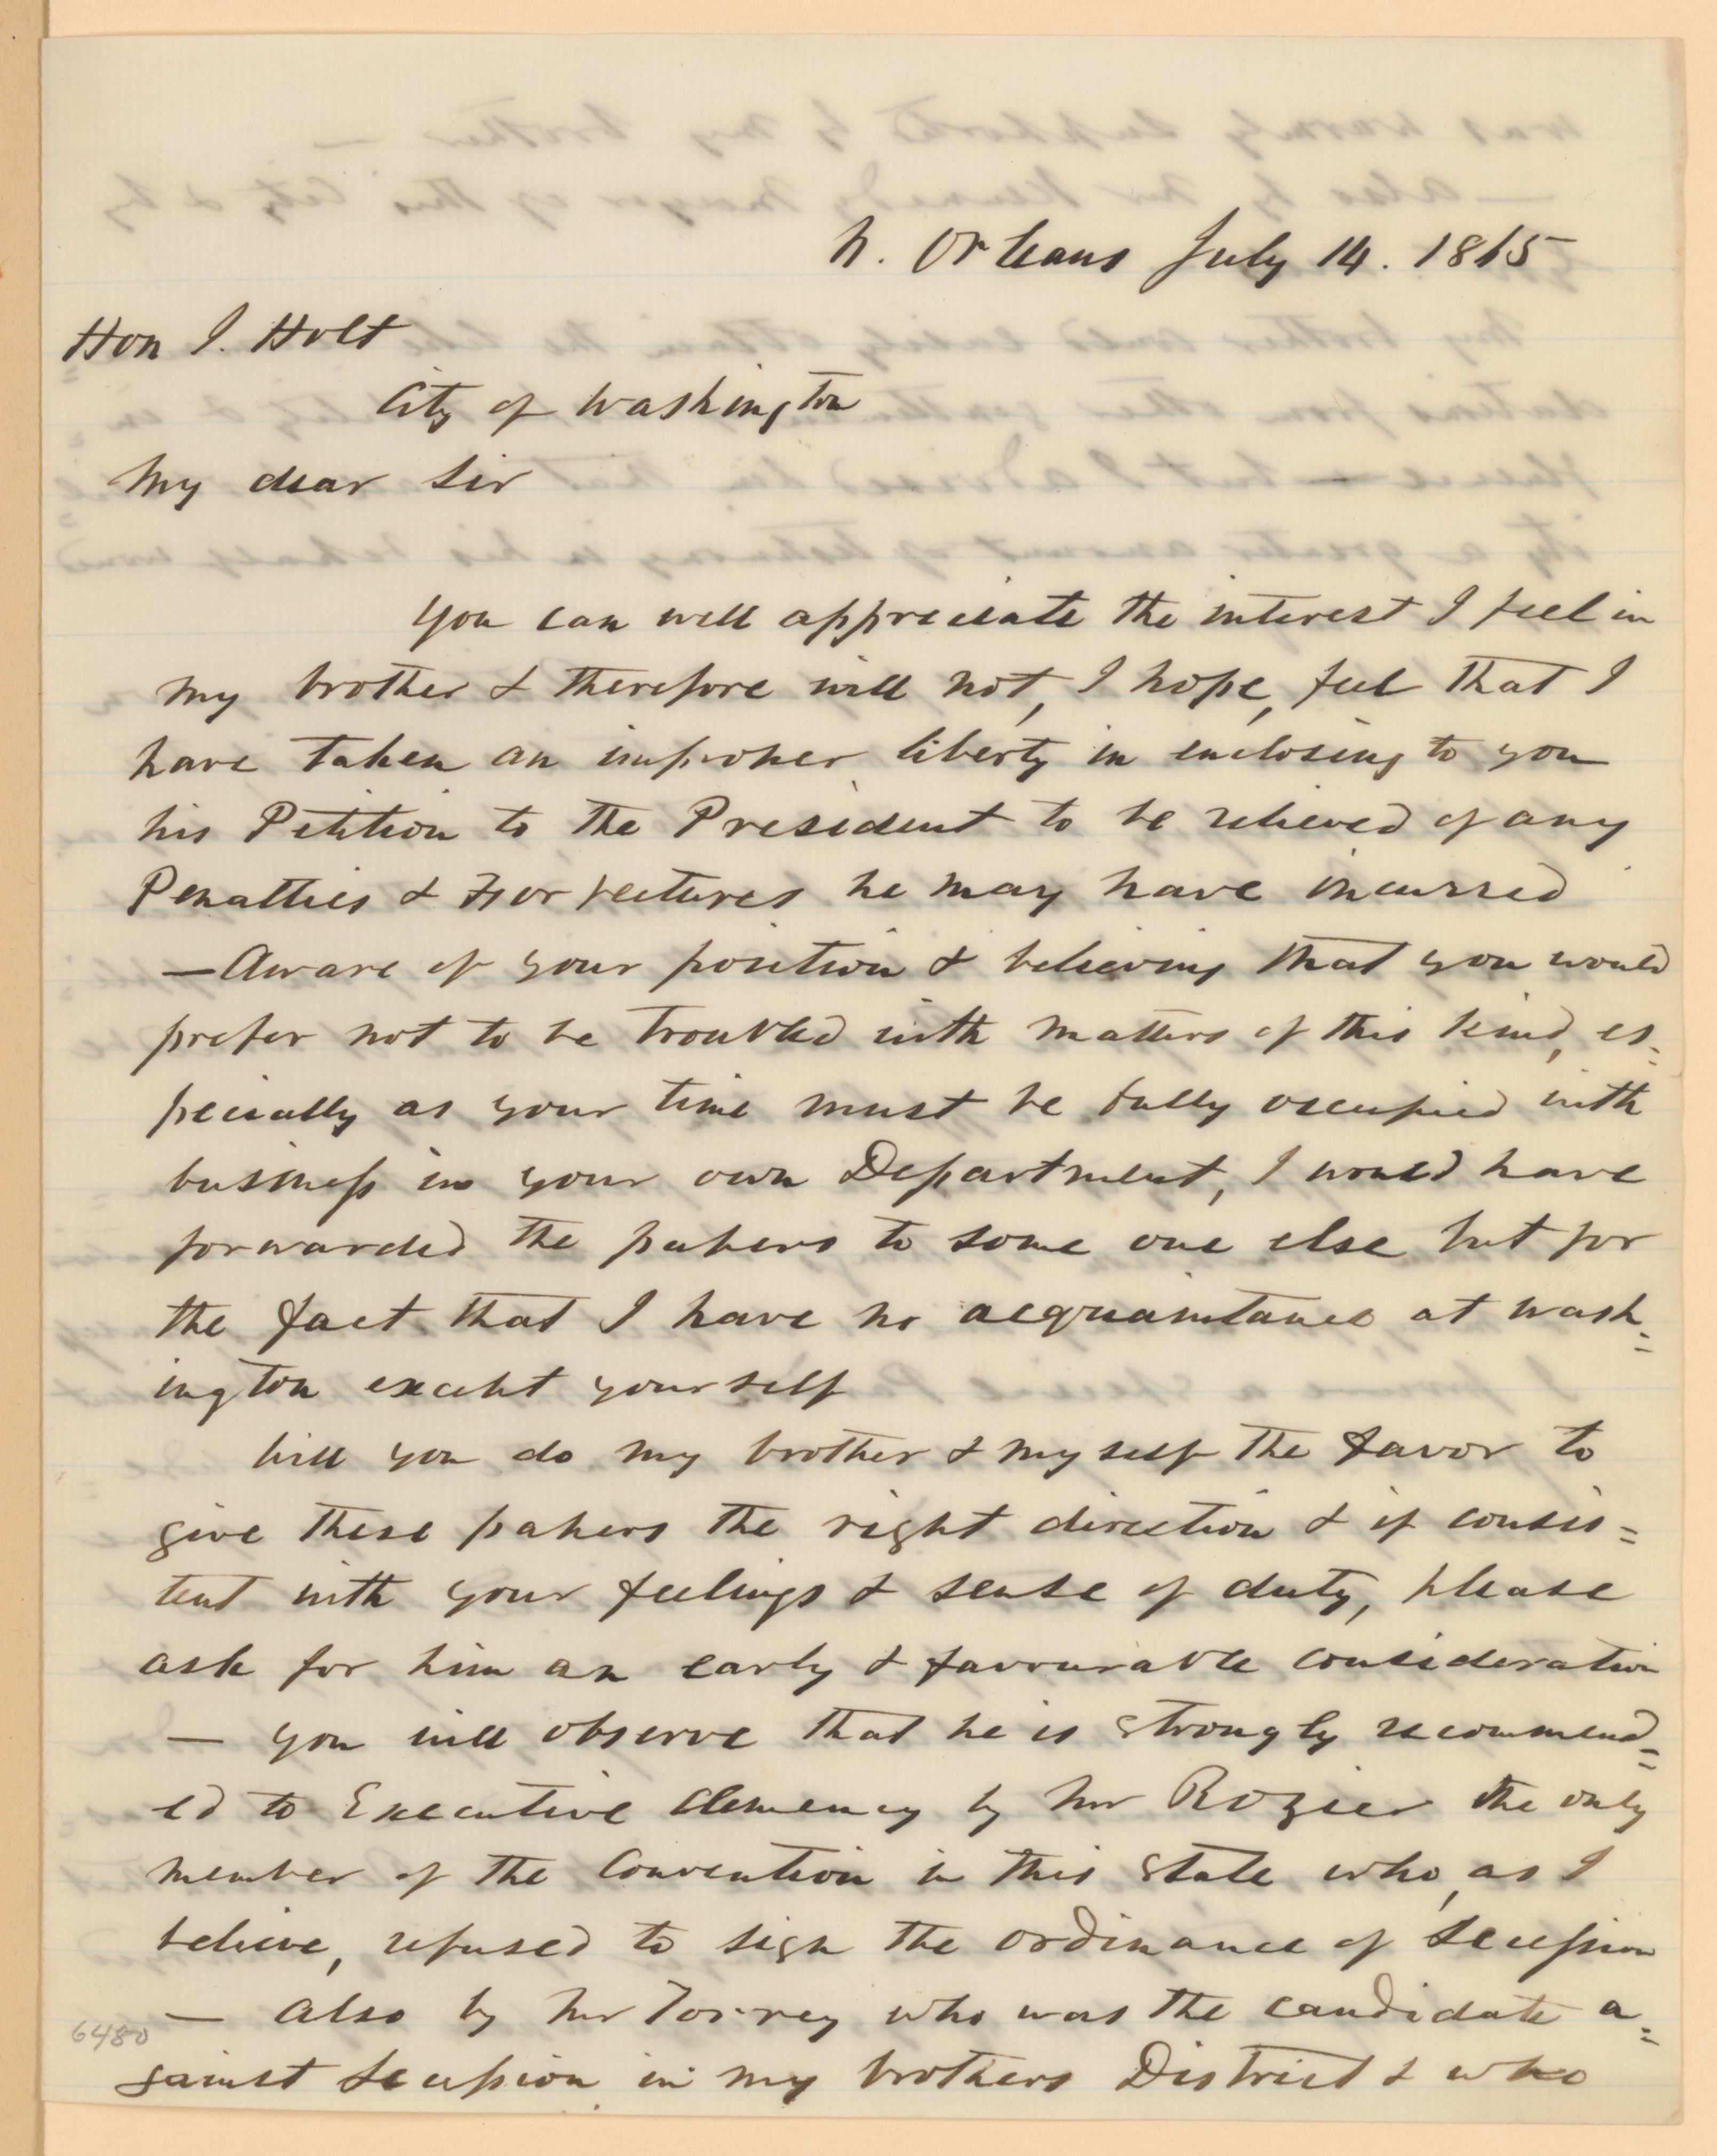 N. Orleans July 14. 1865
Hon J. Holt
City of Washington
My dear Sir
You can well appreciate the interest I feel in
my brother & therefore will not, I hope, feel that I
have taken an improper liberty in enclosing to you
his Petition to the President to be relieved of any
Penalties & Forfeitures he may have incurred
—Aware of your position & believing that you would
prefer not to be troubled with matters of this kind, es=
pecially as your time must be fully occupied with
business in your own Department, I would have
forwarded the papers to some one else but for
the fact that I have no acquaintance at Wash=
ington except yourself
Will you do my brother & myself the favor to
give these papers the right direction & if consis=
tent with your feelings & sense of duty, please
ask for him an early & favourable consideration
— You will observe that he is strongly recommend=
ed to Executive clemency by Mr Rozier the only
member of the Convention in this State who, as I
believe, refused to sign the ordinance of Secession
— Also by Mr Torrey who was the candidate a=
gainst Secession in my brothers District & who
6480